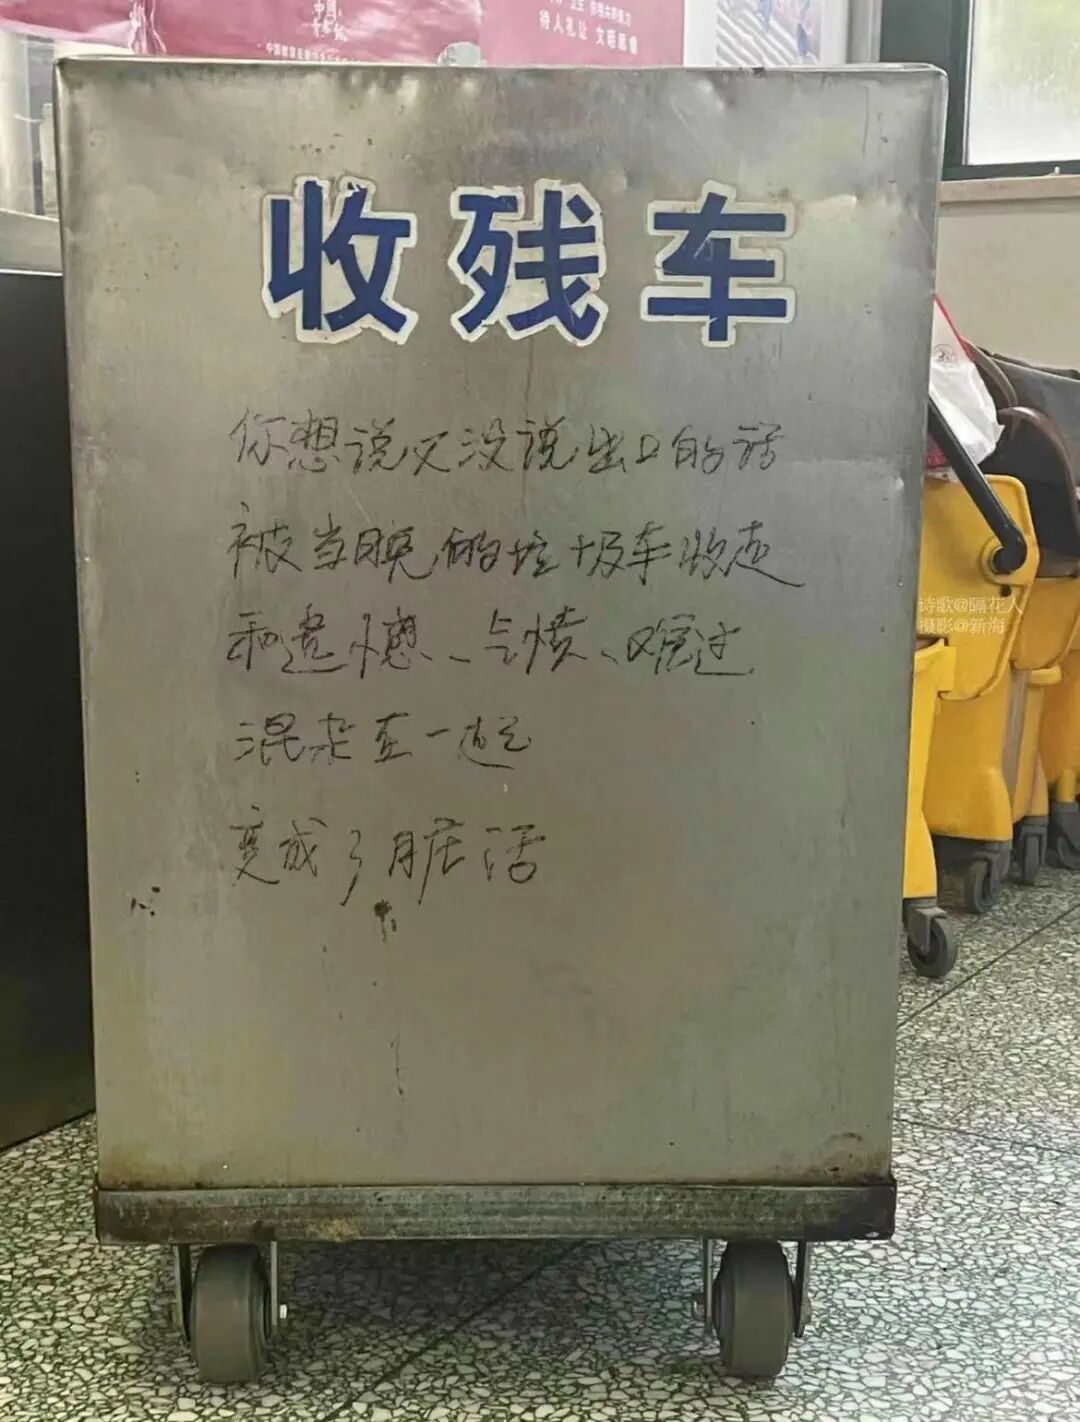 待人礼让 文明用餐
收残车
你想说又没说出口的话
被当晚的垃圾车收走
和遗憾、气愤、难过
混杂在一起
变成了脏话
诗歌@隔花人
摄影@新海